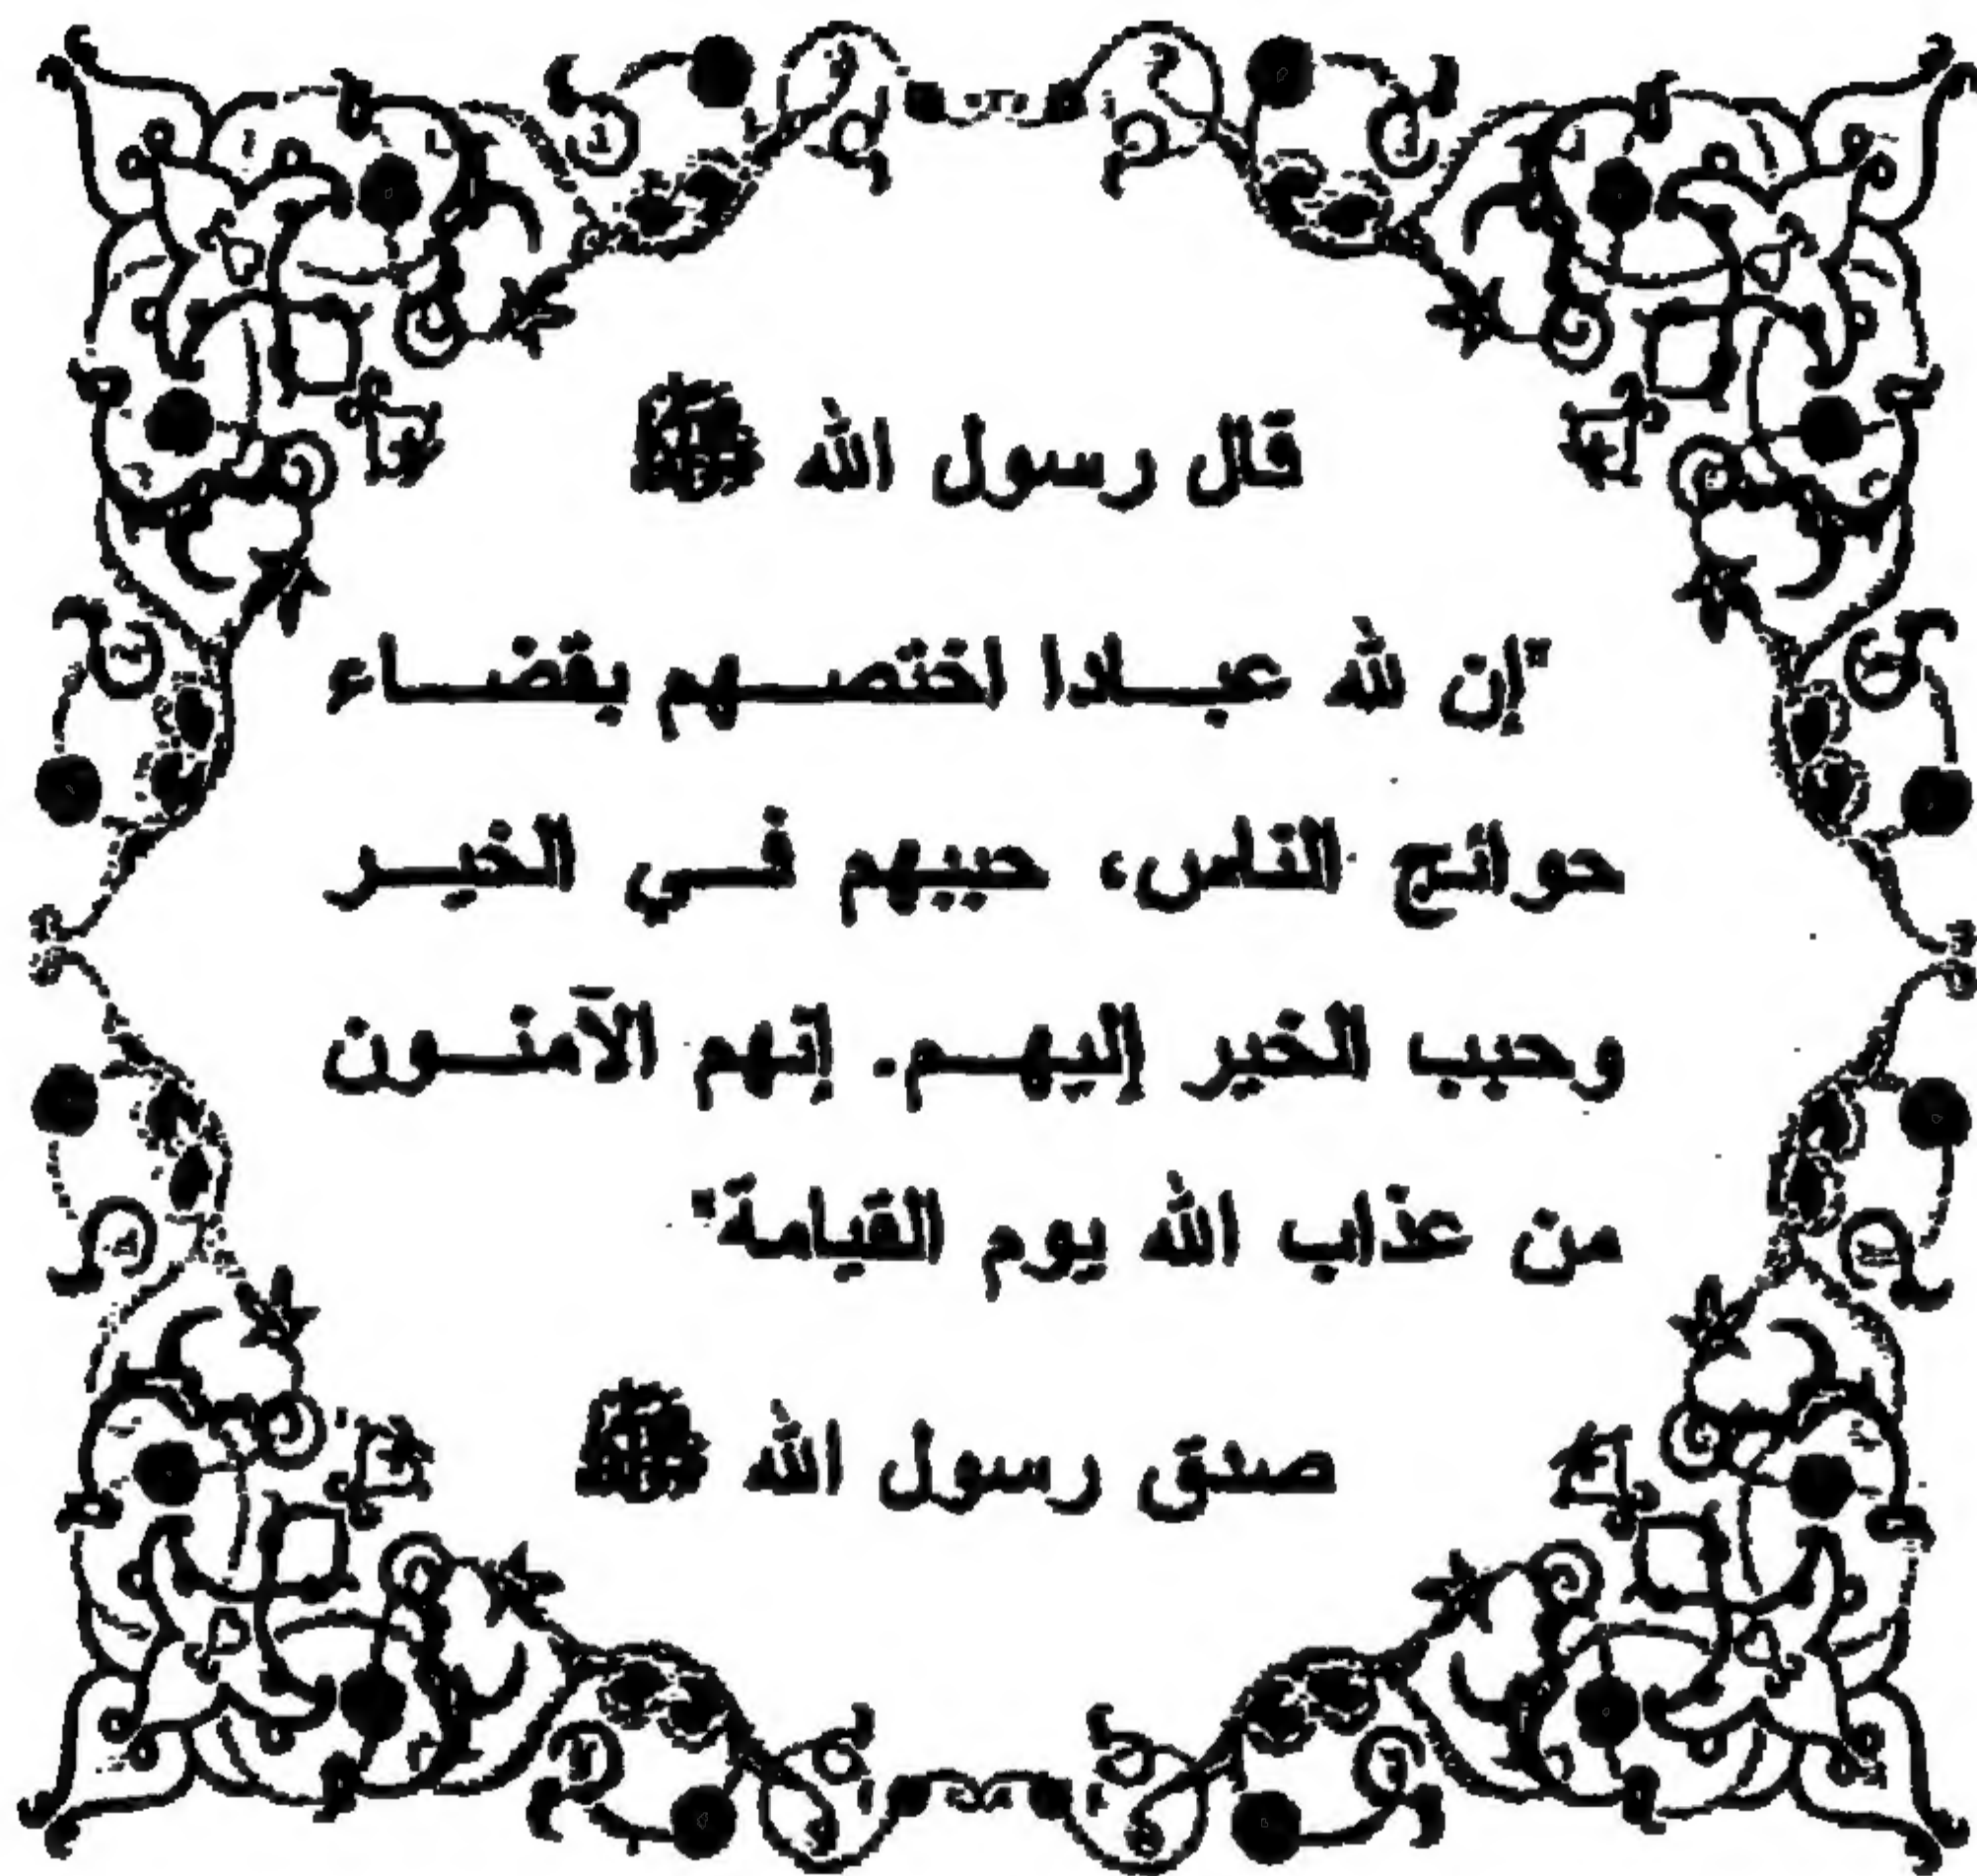 قال رسول الله ﷺ
"إن لله عبادا اختصهم بقضاء
حوائج الناس، حببهم في الخير
وحبب الخير إليهم. إنهم الآمنون
من عذاب الله يوم القيامة"
صدق رسول الله ﷺ